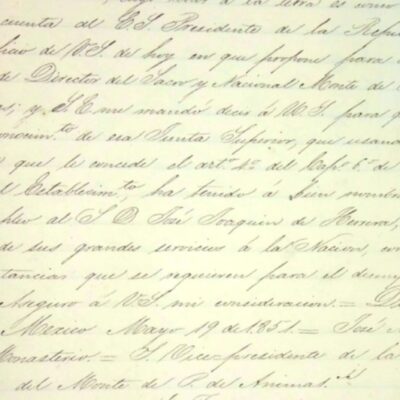 á la letra es como
cuenta al E.S. Presidente de la Repu
licio de V.S. de hoy en que propone para
de Director del Sacro y Nacional Monte de
as; y S.E. me mandó decir á V.S. para
nocim.to de esa Junta Superior, que usand
que le concede el art.º 4º del Cap.º 6º de
l Establecim.to, ha tenido á bien nombra
pleo al S. D. José Joaquin de Herrera,
de sus grandes servicios á la Nacion, con
tancias que se requieren para el desemp
Aseguro á V.S. mi consideracion.= D
Mexico Mayo 19 de 1851.= José M
Monasterio.= S. Vice-presidente de la
del Monte de P. de Animas.